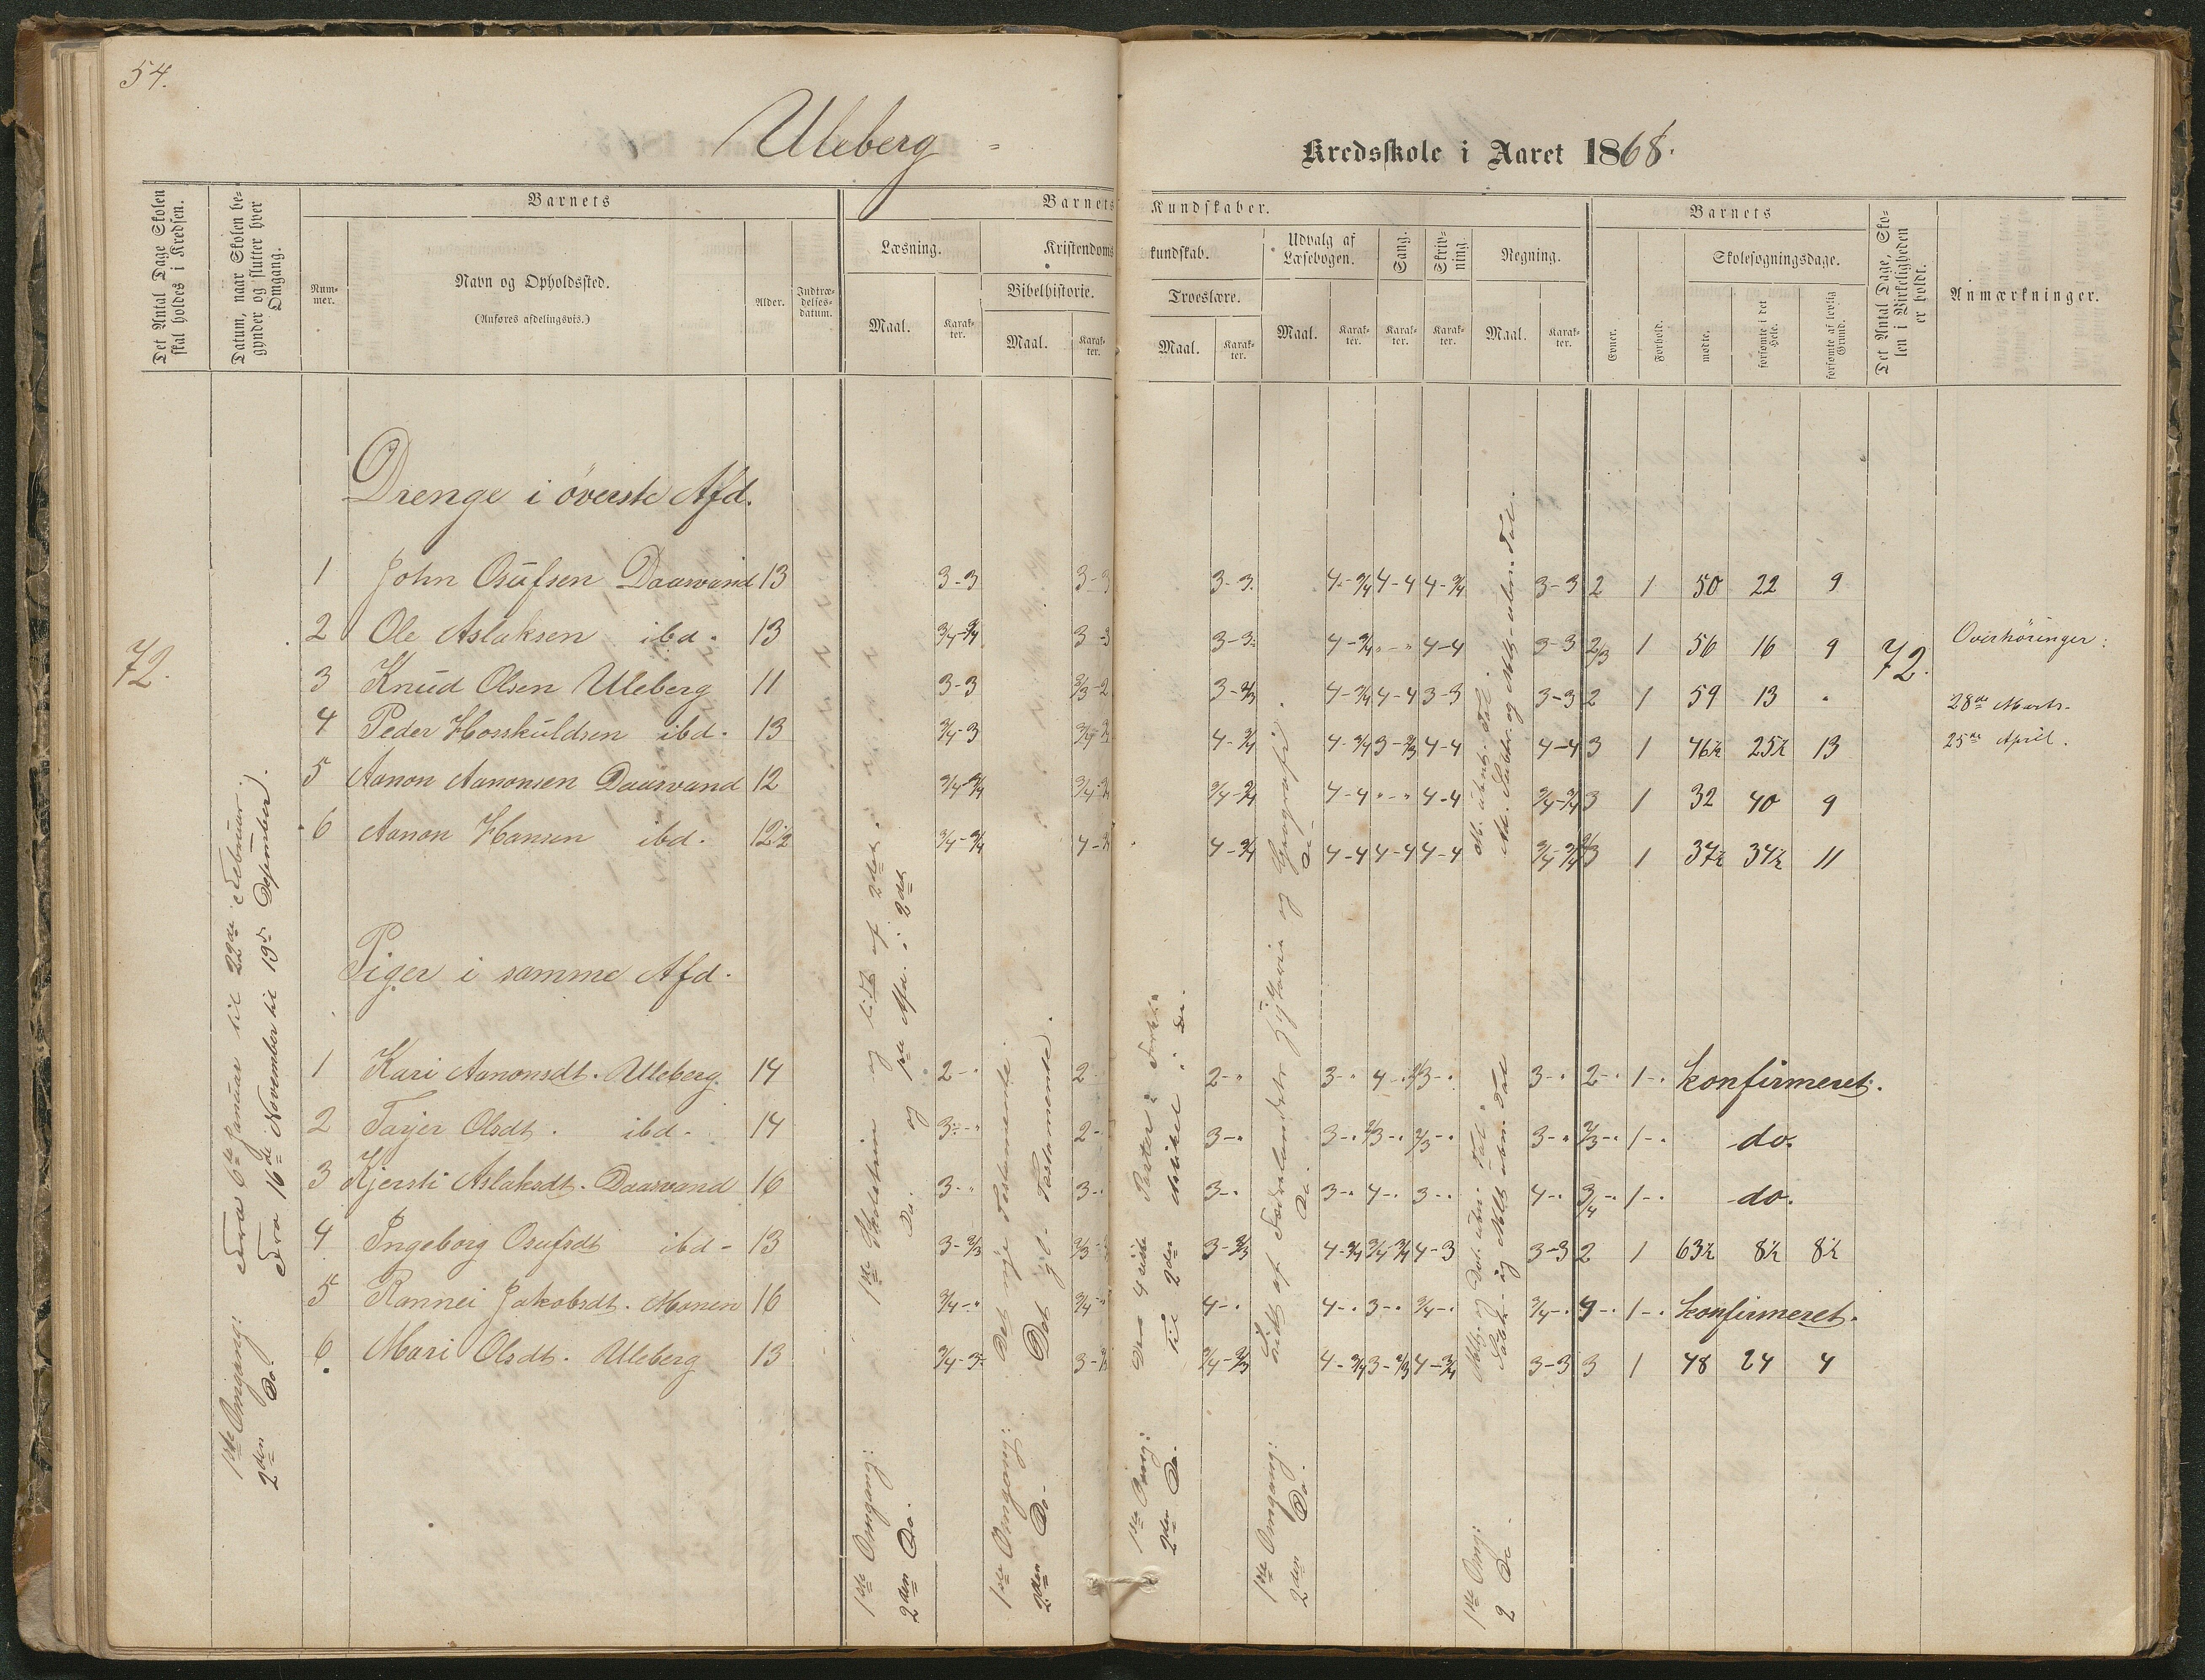 54.
Uleberg
Kredsskole i Aaret 1868.
Det Antal Dage Skolen
skal holdes i Kredsen.
Datum, naar Skolen be-
gynder og slutter hver
Omgang.
Barnets
Num-
mer.
Navn og Opholdssted.
(Anføres afdelingsvis.)
Alder.
Indtræ-
delses-
datum.
Barnets
Kundskaber.
Læsning.
Maal.
Karak-
ter.
Kristendoms
kundskab.
Bibelhistorie.
Maal.
Karak-
ter.
Troeslære.
Maal.
Karak-
ter.
Udvalg af
Læsebogen.
Maal.
Karak-
ter.
Sang.
Karak-
ter.
Skriv-
ning.
Karak-
ter.
Regning.
Maal.
Karak-
ter.
Barnets
Evner.
Forhold.
Skolesøgningsdage.
mødte.
forsømte i det
Hele.
forsømte af lovlig
Grund.
Det Antal Dage, Sko-
len i Virkeligheden
er holdt.
Anmærkninger.
Drenge i överste Afd.
1 John Osufsen Daasvand 13 3-3 3-3 3-3. 4-3/4 4-4 4-3/4 3-3 2 1 50 22 9
2 Ole Aslaksen ibd. 13 3/4-3/4 3-3 3-3 4-3/4 "-" 4-4 3-3 2/3 1 56 16 9
3 Knud Olsen Uleberg 11 3-3 2/3-2 3-2/3 4-3/4 4-4 3-3 3-3 2 1 59 13 "
4 Peder Hosskuldsen ibd. 13 3/4-3 3/4-3/4 4-3/4 4-3/4 3-2/3 4-4 4-4 3 1 46½ 25½ 13
5 Aanon Aanonsen Daasvand 12 3/4-3/4 3/4-3/4 3/4-3/4 4-4 "-" 4-4 3/4-3/4 3 1 32 40 9
6 Aanon Hansen ibd. 12½ 3/4-3/4 4-3/4 4-3/4 4-4 4-4 4-4 3/4-3/4 2/3 1 37½ 34½ 11
72.
72.
Overhöringer:
28de Marts.
25de April.
Piger i samme Afd.
1 Kari Aanonsdt. Uleberg. 14 2-" 2- 2-" 3-" 4-" 2/3-" 3-" 2-" 1-" konfirmeret.
2 Tarjer Olsdt. ibd. 14 3-" 2- 3-" 3-" 2/3-" 2/3-" 3-" 2/3-" 1-" do.
3 Kjersti Aslaksdt. Daasvand 16 3-" 3- 3-" 3-" 4-" 3-" 4-" 3/4-" 1-" do.
4 Ingeborg Osufsdt ibd- 13 3-2/3 2/3- 3-2/3 4-3/4 3/4-3/4 4-3 3-3 2 1 63½ 8½ 8½
5 Rannei Jakobsdt. Monen 16 3/4-" 3/4-" 4-" 4-" 3-" 3/4-" 3/4-" 4-" 1-" konfirmeret.
6 Mari Olsdt. Uleberg 13 3/4-3 3- 3/4-2/3 4-3/4 3-2/3 4-3/4 3-3 3 1 48 24 4
1ste Omgang: Fra 6te Januar til 22de Februar.
2den Do. Fra 16de November til 19de December.
1ste Omgang: 1ste Skoletrin og lidt af 2det.
2den Do. Do. og 1ste Afd. i 2det
1ste Omgang: Det nye Testamente.
2den Do. Det gl. Testamente.
1ste Omg: Den 4 siste Parter i Forkl.
2den Do. Til 2den Artikel i Do.
1ste Omgang: Lidt af Fædrelandets Historie og Geografi.
2den Do. Do. Do.
1ste Omg:
2 Do.